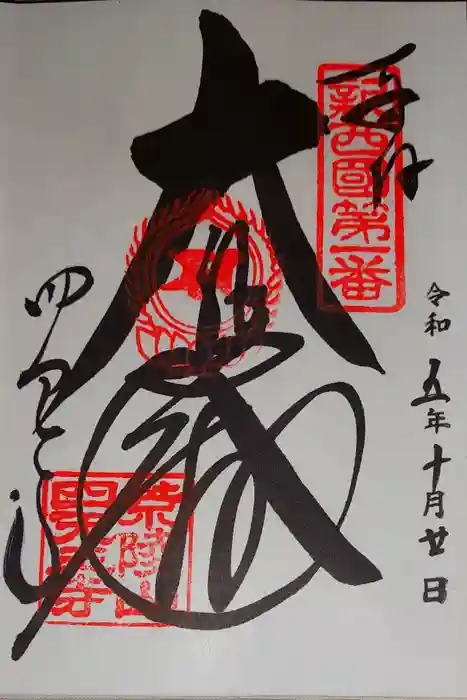 奉拝
新西国第一番
大悲
四天王寺
荒陵山
四天王寺
令和五年十月廿日